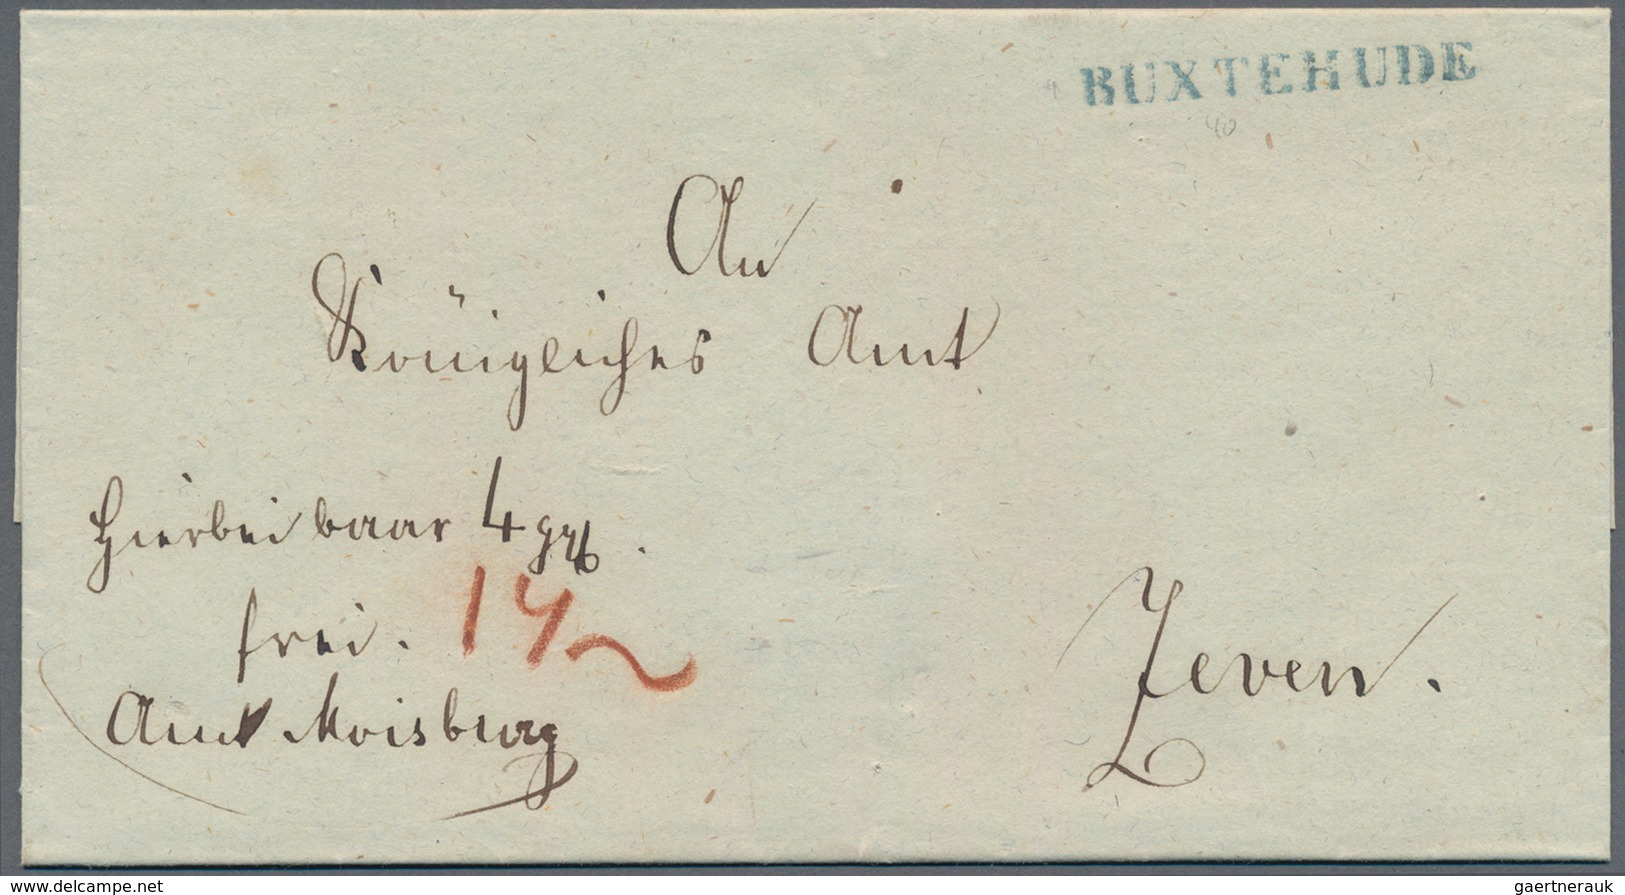 BUXTEHUDE
40
An
Königliches Amt
Hierbei baar 4 ggl.
frei. 14
Amt Moisburg
Zeven.
www.delcampe.net
gaertnerauk